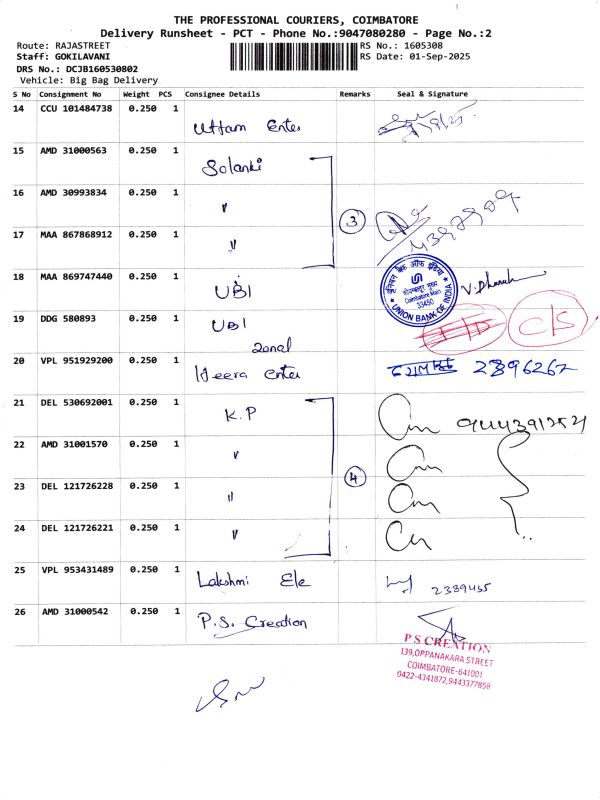 THE PROFESSIONAL COURIERS, COIMBATORE
Delivery Runsheet - PCT - Phone No.:9047080280 - Page No.:2
Route: RAJASTREET RS No.: 1605308
Staff: GOKILAVANI RS Date: 01-Sep-2025
DRS No.: DCJB160530802
Vehicle: Big Bag Delivery
S No Consignment No Weight PCS Consignee Details Remarks Seal & Signature
14 CCU 101484738 0.250 1 Uttam Enter
15 AMD 31000563 0.250 1 Solanki
16 AMD 30993834 0.250 1 "
3
17 MAA 867868912 0.250 1 "
18 MAA 869747440 0.250 1 UBI V. Dhanesh
UNION BANK OF INDIA
Coimbatore Main
19 DDG 580893 0.250 1 UBI C/S
Zonal
20 VPL 951929200 0.250 1 Heera Enter 2396267
21 DEL 530692001 0.250 1 K.P
22 AMD 31001570 0.250 1 "
4
23 DEL 121726228 0.250 1 "
24 DEL 121726221 0.250 1 "
25 VPL 953431489 0.250 1 Lakshmi Ele
26 AMD 31000542 0.250 1 P.S. Creation
P S CREATION
139,OPPANAKARA STREET
COIMBATORE-641001
0422-4341872,9443377858